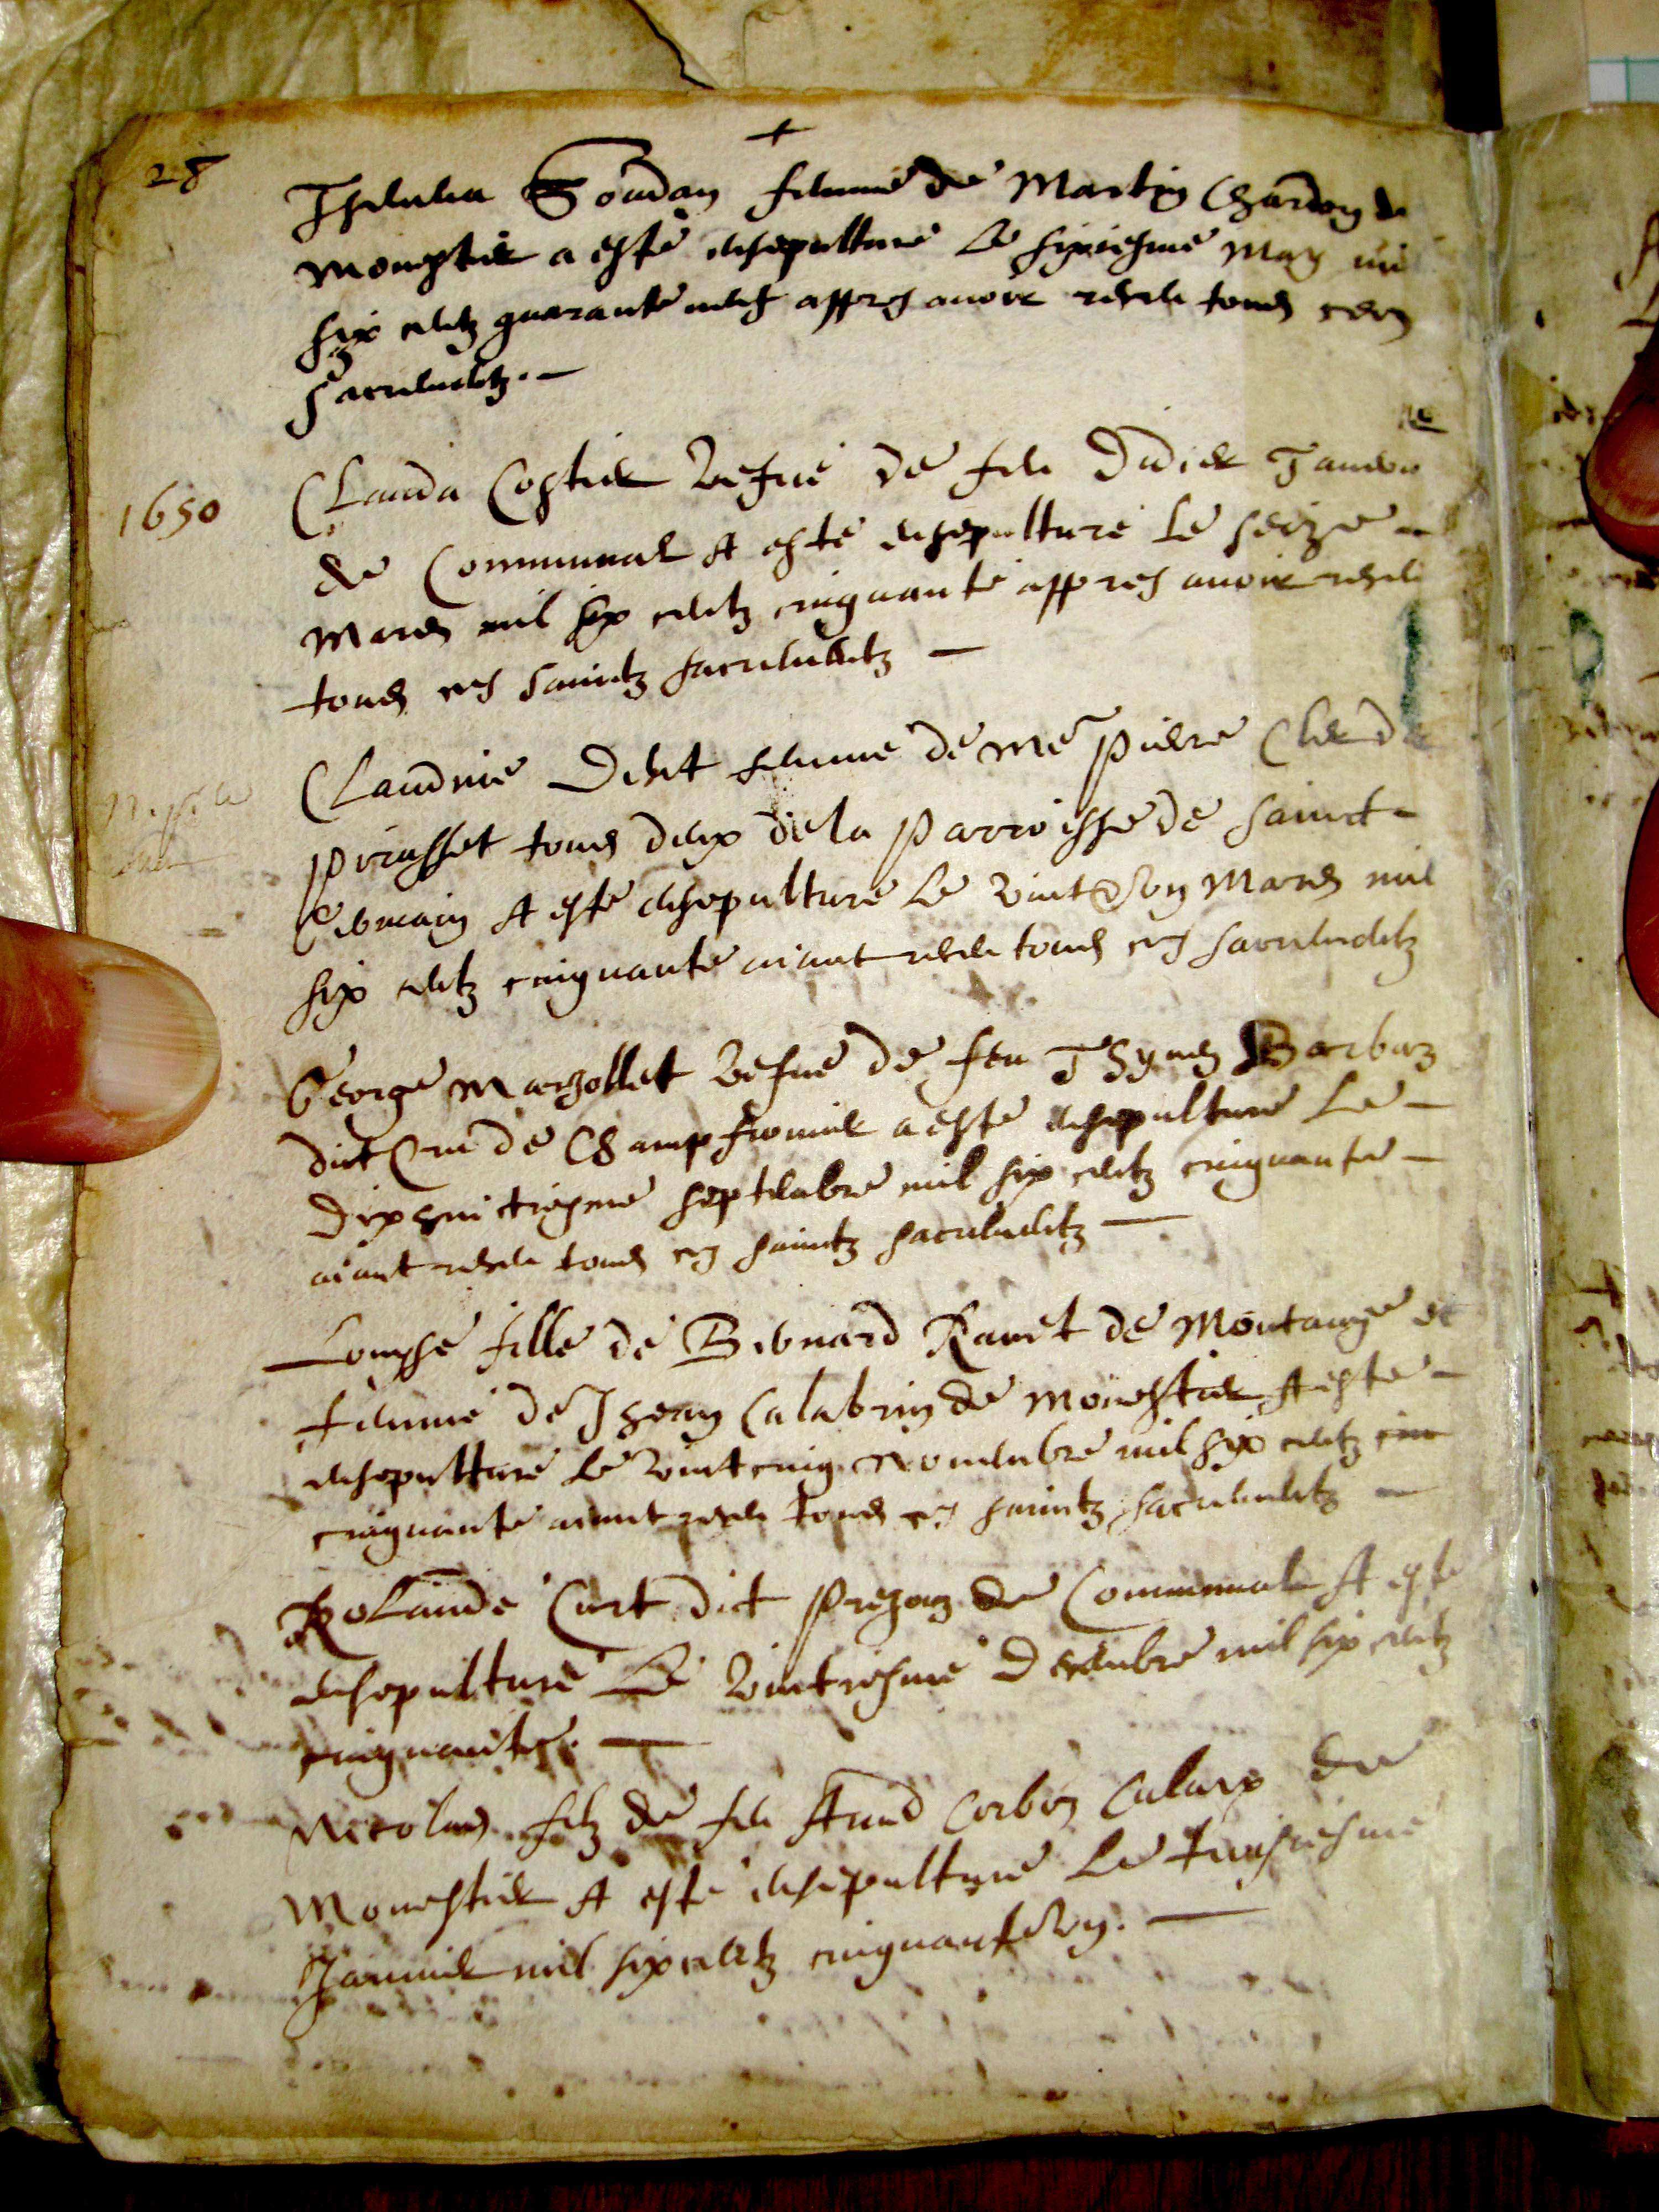 28
+
Goudan femme de Martin Chardon de
Monestier a esté ensepulturé Le sixiesme May mil
six centz quarante neuf appres avoir receu tous ces
Sacrementz. —
1650
Clauda Costier Vefue de feu Didier
de Communal A esté ensepulturé Le seize —
Mars mil six centz cinquante appres avoir receu
tous ces Sainctz sacrementz —
Claudine femme de Me Pierre
tous deux de la Parroisse de Sainct
Germain A esté ensepulturé Le vint &Vng Mars mil
six centz cinquante aiant receu tous ces sacrementz
George Marzollet Vefue de feu Barbaz
dict de Champfromier a esté ensepulturé Le —
Dixhuictiesme septembre mil six centz cinquante —
aiant receu tous ces sainctz sacrementz —
Louyse fille de Bernard Ravet de Montange et
femme de Jhean Calabrin de Monestier A esté —
ensepulturé Le vint cinq Novembre mil six centz cin
cinquante aiant receu tous ces sainctz sacrementz —
Rolande Curt dict de Communal A esté
ensepulturé Le Vintiesme Decembre mil six centz
cinquante. —
Nicolas filz de feu Aimé Corboz de
Monestier A esté ensepulturé Le troisiesme
Janvier mil six centz cinquante &Vng. —